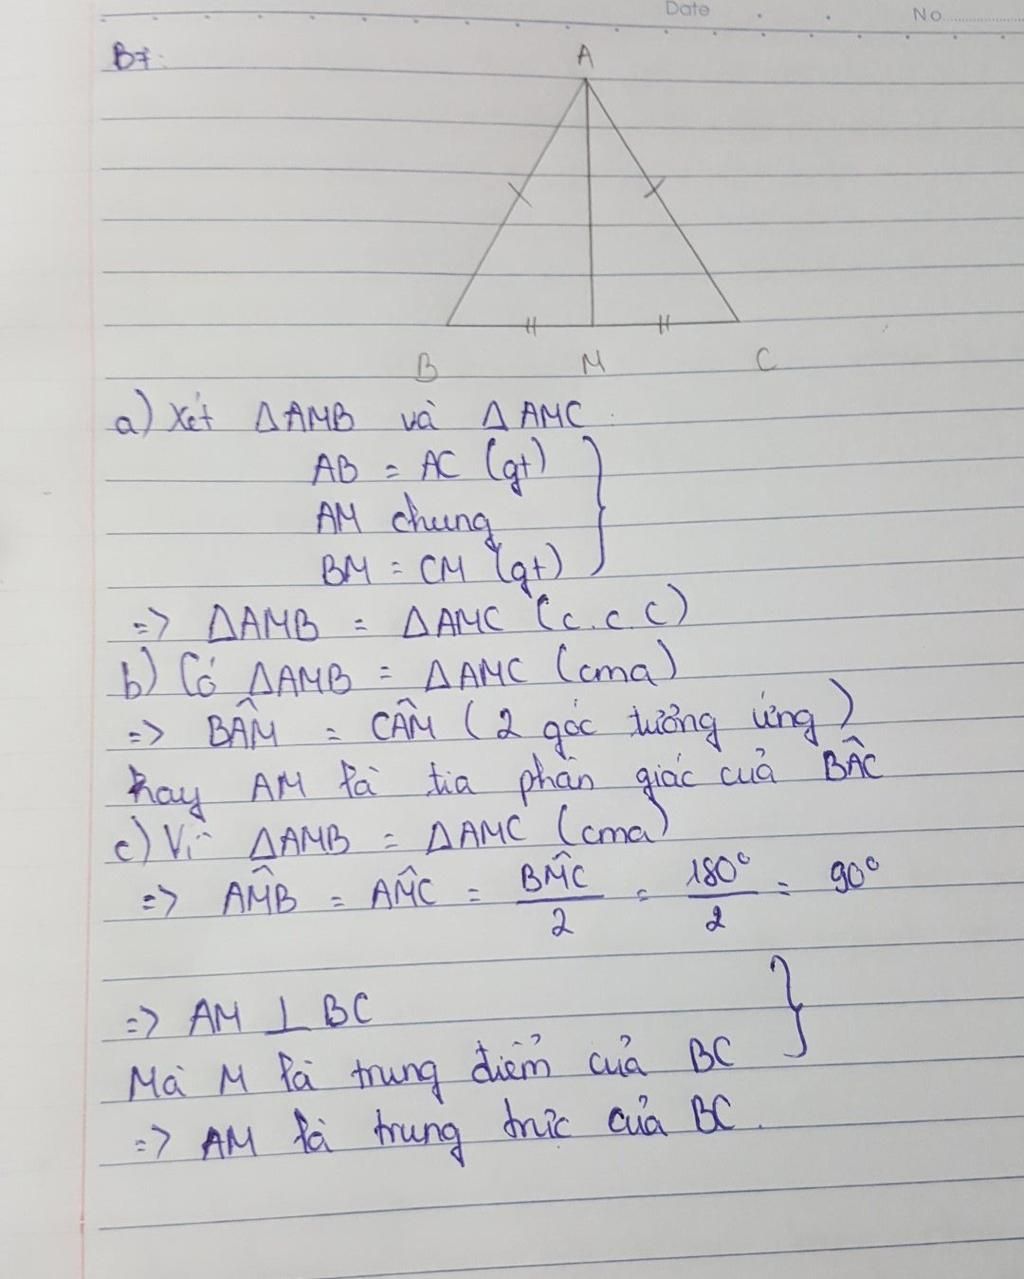 Date No
B7:
A
B M C
a) Xét ΔAMB và ΔAMC
AB = AC (gt)
AM chung
BM = CM (gt)
=> ΔAMB = ΔAMC (c.c.c)
b) Có ΔAMB = ΔAMC (cma)
=> BÂM = CÂM (2 góc tương ứng)
hay AM là tia phân giác của BÂC
c) Vì ΔAMB = ΔAMC (cma)
=> AM̂B = AM̂C = BM̂C/2 = 180°/2 = 90°
=> AM ⊥ BC
Mà M là trung điểm của BC
=> AM là trung trực của BC.